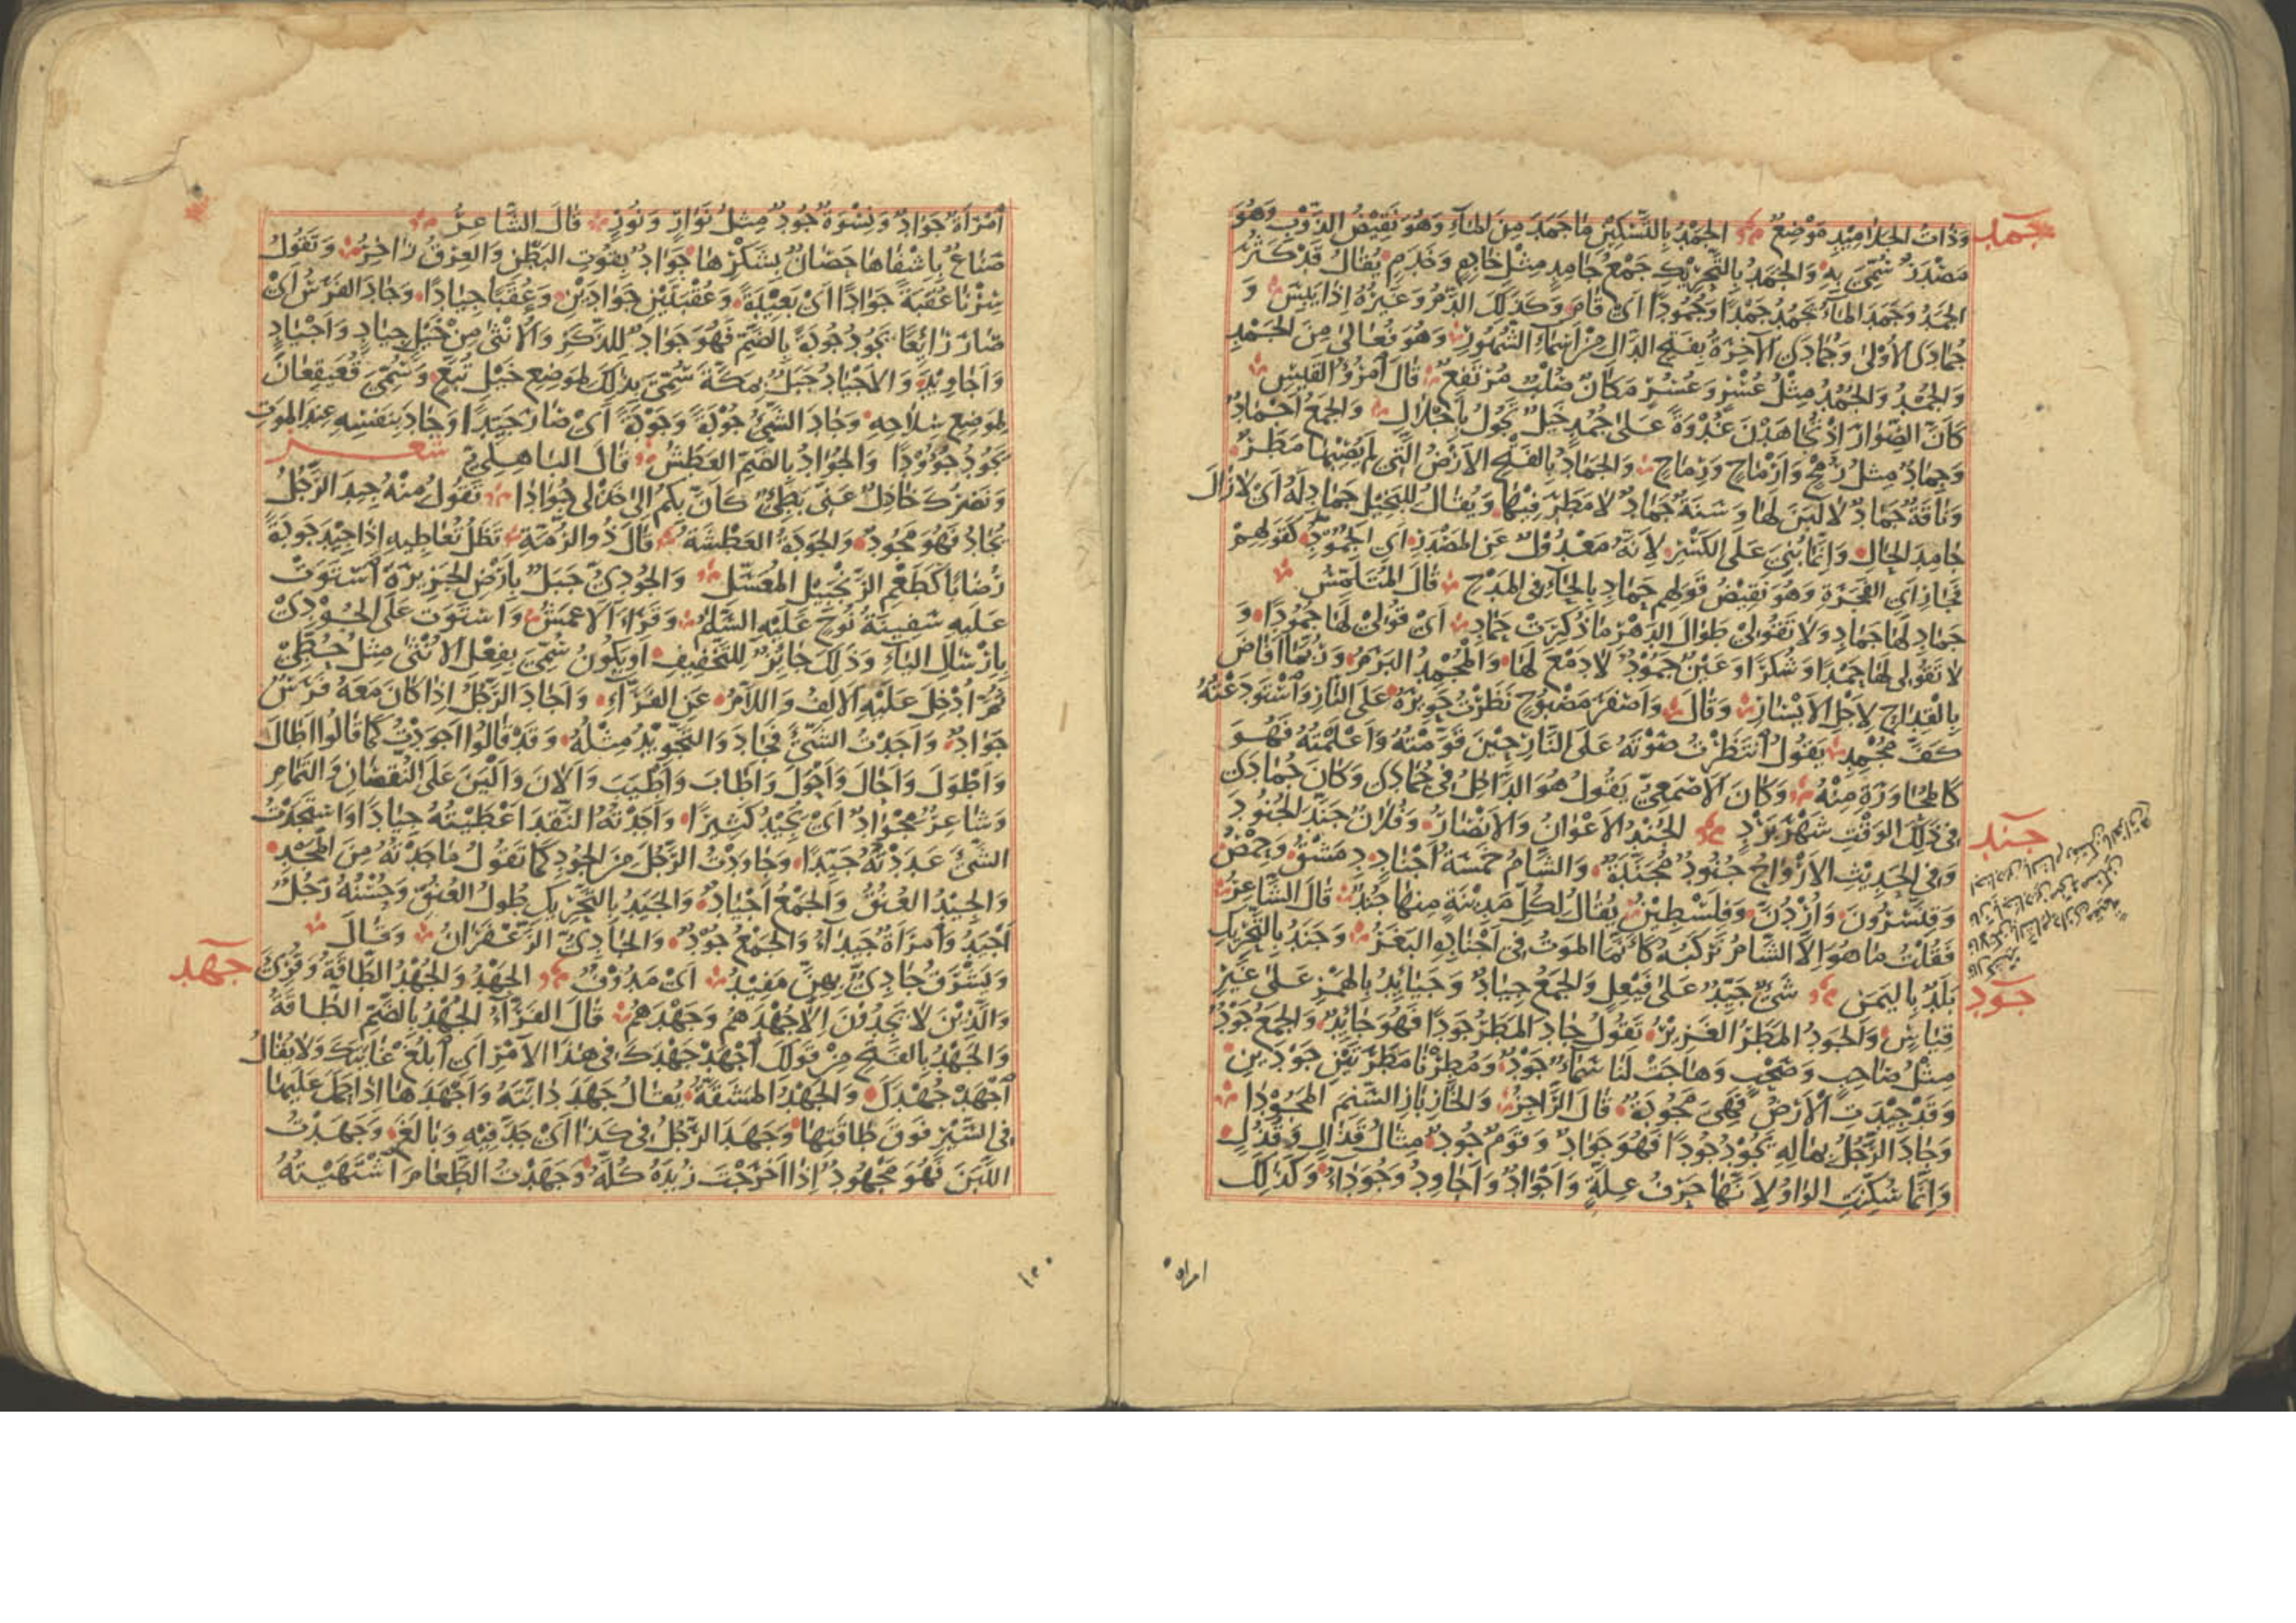 جمد
وَذَاتُ الجَلَامِيْدِ مَوْضِعٌ الجَمْدُ بِالتَّسْكِيْنِ مَا جَمَدَ مِنَ المَاءِ وَهُوَ نَقِيْضُ الذَّوْبِ وَهُوَ
مَصْدَرٌ سُمِّيَ بِهِ وَالجَمَدُ بِالتَّحْرِيْكِ جَمْعُ جَامِدٍ مِثْلُ خَادِمٍ وَخَدَمٍ يُقَالُ قَدْ كَثُرَ
الجَمَدُ وَجَمَدَ المَاءُ يَجْمُدُ جَمْدًا وَجُمُوْدًا اَيْ قَامَ وَكَذٰلِكَ الدَّمُ وَغَيْرُهُ اِذَا يَبِسَ وَ
جُمَادَى الاُوْلٰى وَجُمَادَى الآخِرَةُ بِفَتْحِ الدَّالِ مِنْ اَسْمَاءِ الشُّهُوْرِ وَهُوَ فُعَالٰى مِنَ الجَمْدِ
وَالجُمْدُ وَالجُمُدُ مِثْلُ عُسْرٍ وَعُسُرٍ مَكَانٌ صُلْبٌ مُرْتَفِعٌ قَالَ امْرُؤُ القَيْسِ
كَاَنَّ الصُّوَارَ اِذْ يُجَاهِدْنَ غُدْوَةً عَلٰى جُمُدٍ خَيْلٌ تَجُوْلُ بِاَجْلَالِ وَالجَمْعُ اَجْمَادٌ
وَجِمَادٌ مِثْلُ رُمْحٍ وَاَرْمَاحٍ وَرِمَاحٍ وَالجَمَادُ بِالفَتْحِ الاَرْضُ الَّتِي لَمْ يُصِبْهَا مَطَرٌ
وَنَاقَةٌ جَمَادٌ لَا لَبَنَ لَهَا وَسَنَةٌ جَمَادٌ لَا مَطَرَ فِيْهَا وَيُقَالُ لِلْبَخِيْلِ جَمَادِ لَهُ اَيْ لَا زَالَ
جَامِدَ الحَالِ وَاِنَّمَا بُنِيَ عَلَى الكَسْرِ لِاَنَّهُ مَعْدُوْلٌ عَنِ المَصْدَرِ اَيِ الجُمُوْدِ كَقَوْلِهِمْ
فَجَارِ اَيِ الفَجْرَةِ وَهُوَ نَقِيْضُ قَوْلِهِمْ حَمَادِ بِالحَاءِ فِي المَدْحِ قَالَ المُتَلَمِّسُ
جَمَادِ لَهَا جَمَادِ وَلَا تَقُوْلِيْ طِوَالَ الدَّهْرِ مَا ذُكِرَتْ حَمَادِ اَيْ قُوْلِيْ لَهَا جُمُوْدًا وَ
لَا تَقُوْلِي لَهَا حَمْدًا وَشُكْرًا وَعَيْنٌ جَمُوْدٌ لَا دَمْعَ لَهَا وَالمُجْمِدُ البَرَمُ وَرُبَّمَا اَفَاضَ
بِالقِدَاحِ لِاَجْلِ الاَيْسَارِ وَقَالَ وَاَصْفَرَ مَضْبُوْحٍ نَظَرْتُ حَوِيْرَهُ عَلَى النَّارِ وَاسْتَوْدَعْتُهُ
كَفَّ مُجْمِدٍ يَقُوْلُ انْتَظَرْتُ صَوْتَهُ عَلَى النَّارِ حِيْنَ قَوَّمْتُهُ وَاَعْلَمْتُهُ فَهُوَ
كَالمُحَاوَرَةِ مِنْهُ وَكَانَ الاَصْمَعِيُّ يَقُوْلُ هُوَ الدَّاخِلُ فِي جُمَادَى وَكَانَ جُمَادَى
فِي ذٰلِكَ الوَقْتِ شَهْرَ بَرْدٍ الجُنْدُ الاَعْوَانُ وَالاَنْصَارُ وَفُلَانٌ جَنَّدَ الجُنُوْدَ
جند
وَفِي الحَدِيْثِ الاَرْوَاحُ جُنُوْدٌ مُجَنَّدَةٌ وَالشَّامُ خَمْسَةُ اَجْنَادٍ دِمَشْقُ وَحِمْصُ
وَقِنَّسْرُوْنَ وَاُرْدُنُّ وَفِلَسْطِيْنُ يُقَالُ لِكُلِّ مَدِيْنَةٍ مِنْهَا جُنْدٌ قَالَ الشَّاعِرُ
فَقُلْتُ مَا هُوَ اِلَّا الشَّامُ تَرْكَبُهُ كَاَنَّمَا المَوْتُ فِي اَجْنَادِهِ البَغَرُ وَجَنَدُ بِالتَّحْرِيْكِ
بَلَدٌ بِاليَمَنِ شَيْءٌ جَيِّدٌ عَلٰى فَيْعِلٍ وَالجَمْعُ جِيَادٌ وَجَيَائِدُ بِالهَمْزِ عَلٰى غَيْرِ
جود
قِيَاسٍ وَالجَوْدُ المَطَرُ الغَزِيْرُ تَقُوْلُ جَادَ المَطَرُ جَوْدًا فَهُوَ جَائِدٌ وَالجَمْعُ جَوْدٌ
مِثْلُ صَاحِبٍ وَصَحْبٍ وَهَاجَتْ لَنَا سَمَاءٌ جَوْدٌ وَمُطِرْنَا مَطْرَتَيْنِ جَوْدَيْنِ
وَقَدْ جِيْدَتِ الاَرْضُ فَهِيَ مَجُوْدَةٌ قَالَ الرَّاجِزُ وَالخَازِبَازِ السَّنِمَ المَجُوْدَا
وَجَادَ الرَّجُلُ بِمَالِهِ يَجُوْدُ جُوْدًا فَهُوَ جَوَادٌ وَقَوْمٌ جُوْدٌ مِثَالُ قَذَالٍ وَقُذُلٍ
وَاِنَّمَا سُكِّنَتِ الوَاوُ لِاَنَّهَا حَرْفُ عِلَّةٍ وَاَجْوَادٌ وَاَجَاوِدُ وَجُوَدَاءُ وَكَذٰلِكَ
امراة
اِمْرَاَةٌ جَوَادٌ وَنِسْوَةٌ جُوْدٌ مِثْلُ نَوَارٍ وَنُوْرٍ قَالَ الشَّاعِرُ
صَنَاعٌ بِاِشْفَاهَا حَصَانٌ بِشَكْرِهَا جَوَادٌ بِقُوْتِ البَطْنِ وَالعِرْقُ زَاخِرُ وَتَقُوْلُ
سِرْنَا عُقْبَةً جَوَادًا اَيْ بَعِيْدَةً وَعُقْبَتَيْنِ جَوَادَيْنِ وَعُقَبًا جِيَادًا وَجَادَ الفَرَسُ اَيْ
صَارَ رَائِعًا يَجُوْدُ جُوْدَةً بِالضَّمِّ فَهُوَ جَوَادٌ لِلذَّكَرِ وَالاُنْثٰى مِنْ خَيْلٍ جِيَادٍ وَاَجْيَادٍ
وَاَجَاوِيْدَ وَالاَجْيَادُ جَبَلٌ بِمَكَّةَ سُمِّيَ بِذٰلِكَ لِمَوْضِعِ خَيْلِ تُبَّعٍ وَسُمِّيَ قُعَيْقِعَانُ
لِمَوْضِعِ سِلَاحِهِ وَجَادَ الشَّيْءُ جُوْدَةً وَجَوْدَةً اَيْ صَارَ جَيِّدًا وَجَادَ بِنَفْسِهِ عِنْدَ المَوْتِ
يَجُوْدُ جُؤُوْدًا وَالجُوَادُ بِالضَّمِّ العَطَشُ قَالَ البَاهِلِيُّ شعر
وَنَصْرُكَ خَاذِلٌ عَنِّي بَطِيْءٌ كَاَنَّ بِكُمْ اِلٰى خَذْلِي جُوَادَا تَقُوْلُ مِنْهُ جِيْدَ الرَّجُلُ
يُجَادُ فَهُوَ مَجُوْدٌ وَالجَوْدَةُ العَطْشَةُ قَالَ ذُو الرُّمَّةِ تَظَلُّ تُعَاطِيْهِ اِذَا جِيْدَ جَوْدَةً
رُضَابًا كَطَعْمِ الزَّنْجَبِيْلِ المُعَسَّلِ وَالجُوْدِيُّ جَبَلٌ بِاَرْضِ الجَزِيْرَةِ اسْتَوَتْ
عَلَيْهِ سَفِيْنَةُ نُوْحٍ عَلَيْهِ السَّلَامُ وَقَرَاَ الاَعْمَشُ وَاسْتَوَتْ عَلَى الجُوْدِيْ
بِاِرْسَالِ اليَاءِ وَذٰلِكَ جَائِزٌ لِلتَّخْفِيْفِ اَوْ يَكُوْنُ سُمِّيَ بِفِعْلِ الاُنْثٰى مِثْلُ حُطِّيْ
ثُمَّ اُدْخِلَ عَلَيْهِ الاَلِفُ وَاللَّامُ عَنِ الفَرَّاءِ وَاَجَادَ الرَّجُلُ اِذَا كَانَ مَعَهُ فَرَسٌ
جَوَادٌ وَاَجَدْتُ الشَّيْءَ فَجَادَ وَالتَّجْوِيْدُ مِثْلُهُ وَقَدْ قَالُوْا اَجْوَدْتُ كَمَا قَالُوْا اَطَالَ
وَاَطْوَلَ وَاَحَالَ وَاَحْوَلَ وَاَطَابَ وَاَطْيَبَ وَاَلَانَ وَاَلْيَنَ عَلَى النُّقْصَانِ وَالتَّمَامِ
وَشَاعِرٌ مِجْوَادٌ اَيْ يُجِيْدُ كَثِيْرًا وَاَجَدْتُهُ النَّقْدَ اَعْطَيْتُهُ جِيَادًا وَاسْتَجَدْتُ
الشَّيْءَ عَدَدْتُهُ جَيِّدًا وَجَاوَدْتُ الرَّجُلَ مِنَ الجُوْدِ كَمَا تَقُوْلُ مَاجَدْتُهُ مِنَ المَجْدِ
وَالجِيْدُ العُنُقُ وَالجَمْعُ اَجْيَادٌ وَالجَيَدُ بِالتَّحْرِيْكِ طُوْلُ العُنُقِ وَحُسْنُهُ رَجُلٌ
اَجْيَدُ وَامْرَاَةٌ جَيْدَاءُ وَالجَمْعُ جُوْدٌ وَالجَادِيُّ الزَّعْفَرَانُ وَقَالَ
وَيُشْرِقُ جَادِيٌّ بِهِنَّ مَفِيْدُ اَيْ مَدُوْفٌ الجَهْدُ وَالجُهْدُ الطَّاقَةُ وَقُرِئَ
جهد
وَالَّذِيْنَ لَا يَجِدُوْنَ اِلَّا جُهْدَهُمْ وَجَهْدَهُمْ قَالَ الفَرَّاءُ الجُهْدُ بِالضَّمِّ الطَّاقَةُ
وَالجَهْدُ بِالفَتْحِ مِنْ قَوْلِكَ اجْهَدْ جَهْدَكَ فِي هٰذَا الاَمْرِ اَيِ ابْلُغْ غَايَتَكَ وَلَا يُقَالُ
اجْهَدْ جُهْدَكَ وَالجَهْدُ المَشَقَّةُ يُقَالُ جَهَدَ دَابَّتَهُ وَاَجْهَدَهَا اِذَا حَمَلَ عَلَيْهَا
فِي السَّيْرِ فَوْقَ طَاقَتِهَا وَجَهَدَ الرَّجُلُ فِي كَذَا اَيْ جَدَّ فِيْهِ وَبَالَغَ وَجَهَدْتُ
اللَّبَنَ فَهُوَ مَجْهُوْدٌ اِذَا اَخْرَجْتَ زُبْدَهُ كُلَّهُ وَجَهَدْتُ الطَّعَامَ اشْتَهَيْتُهُ